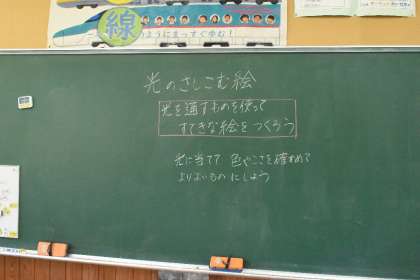 線
のようにまっすぐ歩む!
光のさしこむ絵
光を通すものを使って
すてきな絵をつくろう
光に当てて 色やこさを確かめて
よりよいものにしよう